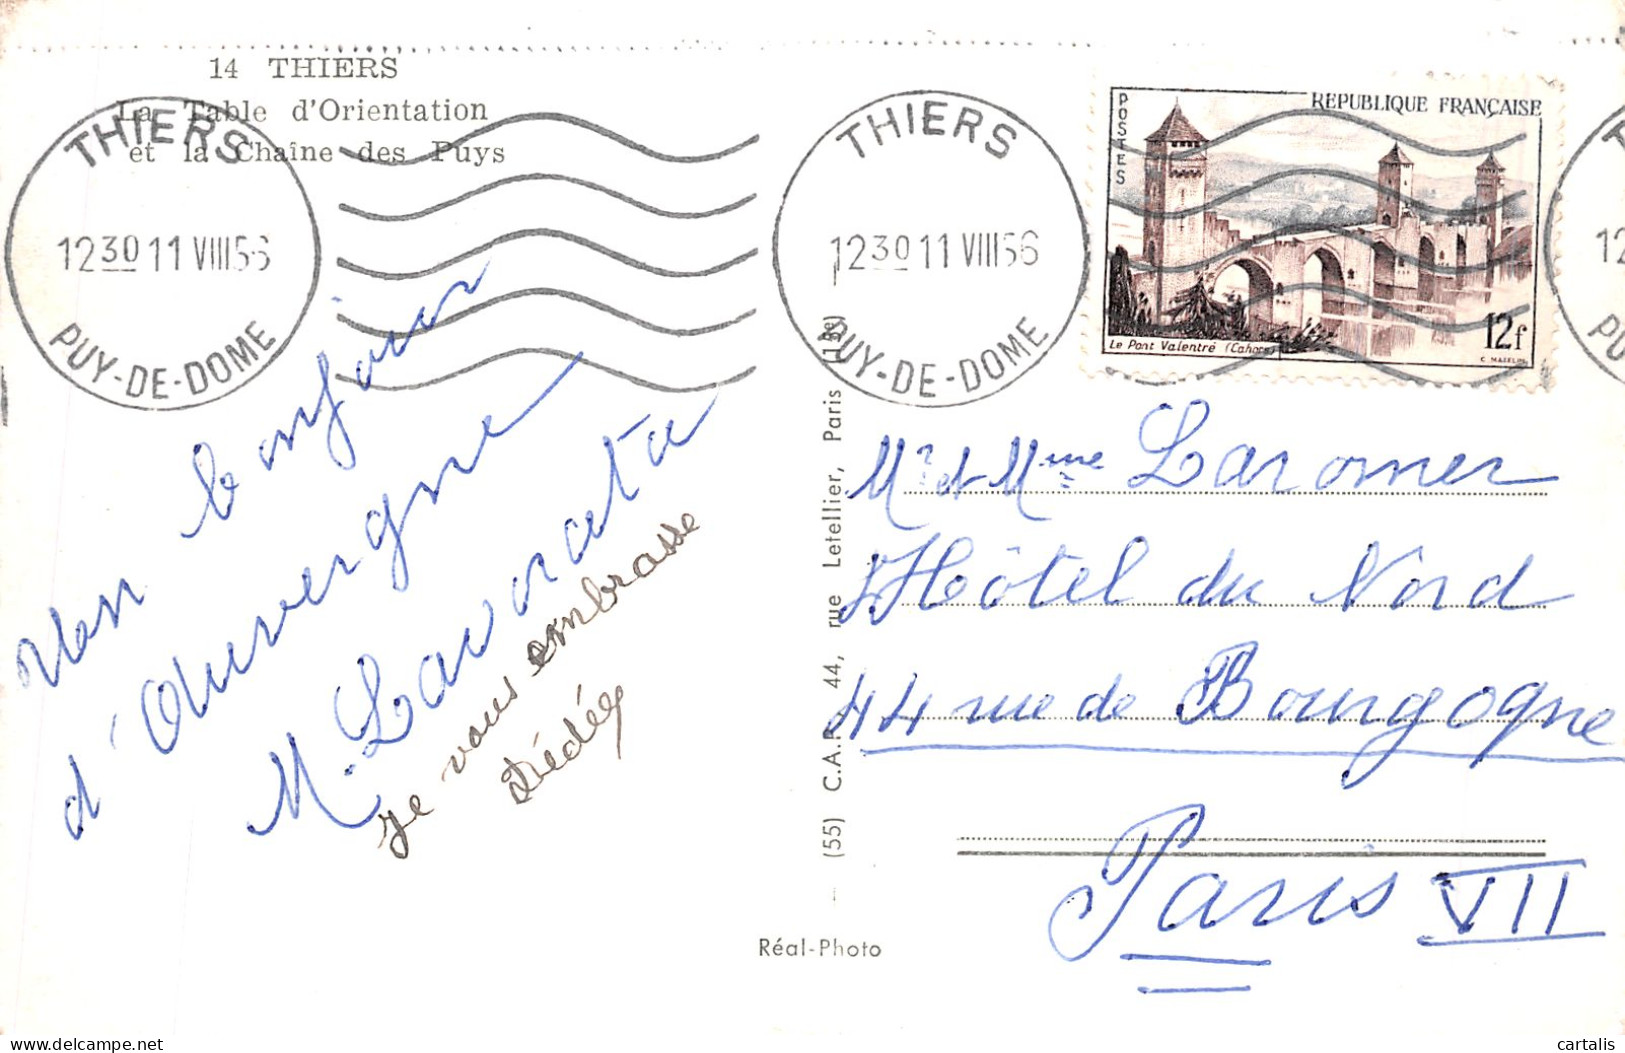 14 THIERS
La Table d'Orientation
et la Chaîne des Puys
THIERS
12 30 11 VIII 56
PUY-DE-DOME
THIERS
12 30 11 VIII 56
PUY-DE-DOME
POSTES
REPUBLIQUE FRANÇAISE
Le Pont Valentré (Cahors)
12f
C. MAZELIN
12
bonjour
d'Auvergne
M. Lavorata
je vous embrasse
Dédée
(55) C.A.P. 44, rue Letellier, Paris
Réal-Photo
Mr et Mme Laromer
Hôtel du Nord
44 rue de Bourgogne
Paris VII
cartalis